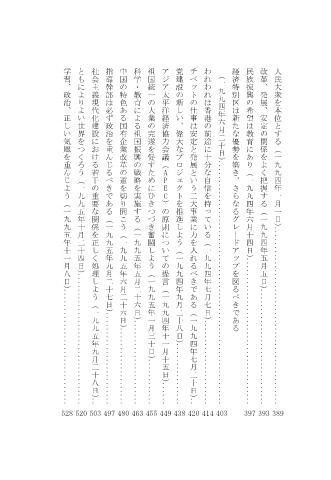 人民大衆を本位とする（一九九四年一月一日）……389
改革、発展、安定の関係をよく把握する（一九九四年五月五日）……393
民族振興の希望は教育にあり（一九九四年六月十四日）……397
経済特別区は新たな優勢を築き、さらなるグレードアップを図るべきである
（一九九四年六月二十日）……403
われわれは香港の前途に十分な自信を持っている（一九九四年七月七日）……414
チベットの仕事は安定と発展という二大事業に力を入れるべきである（一九九四年七月二十日）……420
党建設の新しい、偉大なプロジェクトを推進しよう（一九九四年九月二十八日）……438
アジア太平洋経済協力会議（APEC）の原則についての提言（一九九四年十一月十五日）……449
祖国統一の大業の完遂を促すためにひきつづき奮闘しよう（一九九五年一月三十日）……455
科学・教育による祖国振興の戦略を実施する（一九九五年五月二十六日）……463
中国の特色ある国有企業改革の道を切り開こう（一九九五年六月二十六日）……480
指導幹部は必ず政治を重んじるべきである（一九九五年九月二十七日）……497
社会主義現代化建設における若干の重要な関係を正しく処理しよう（一九九五年九月二十八日）……503
ともによりよい世界をつくろう（一九九五年十月二十四日）……520
学習、政治、正しい気風を重んじよう（一九九五年十一月八日）……528